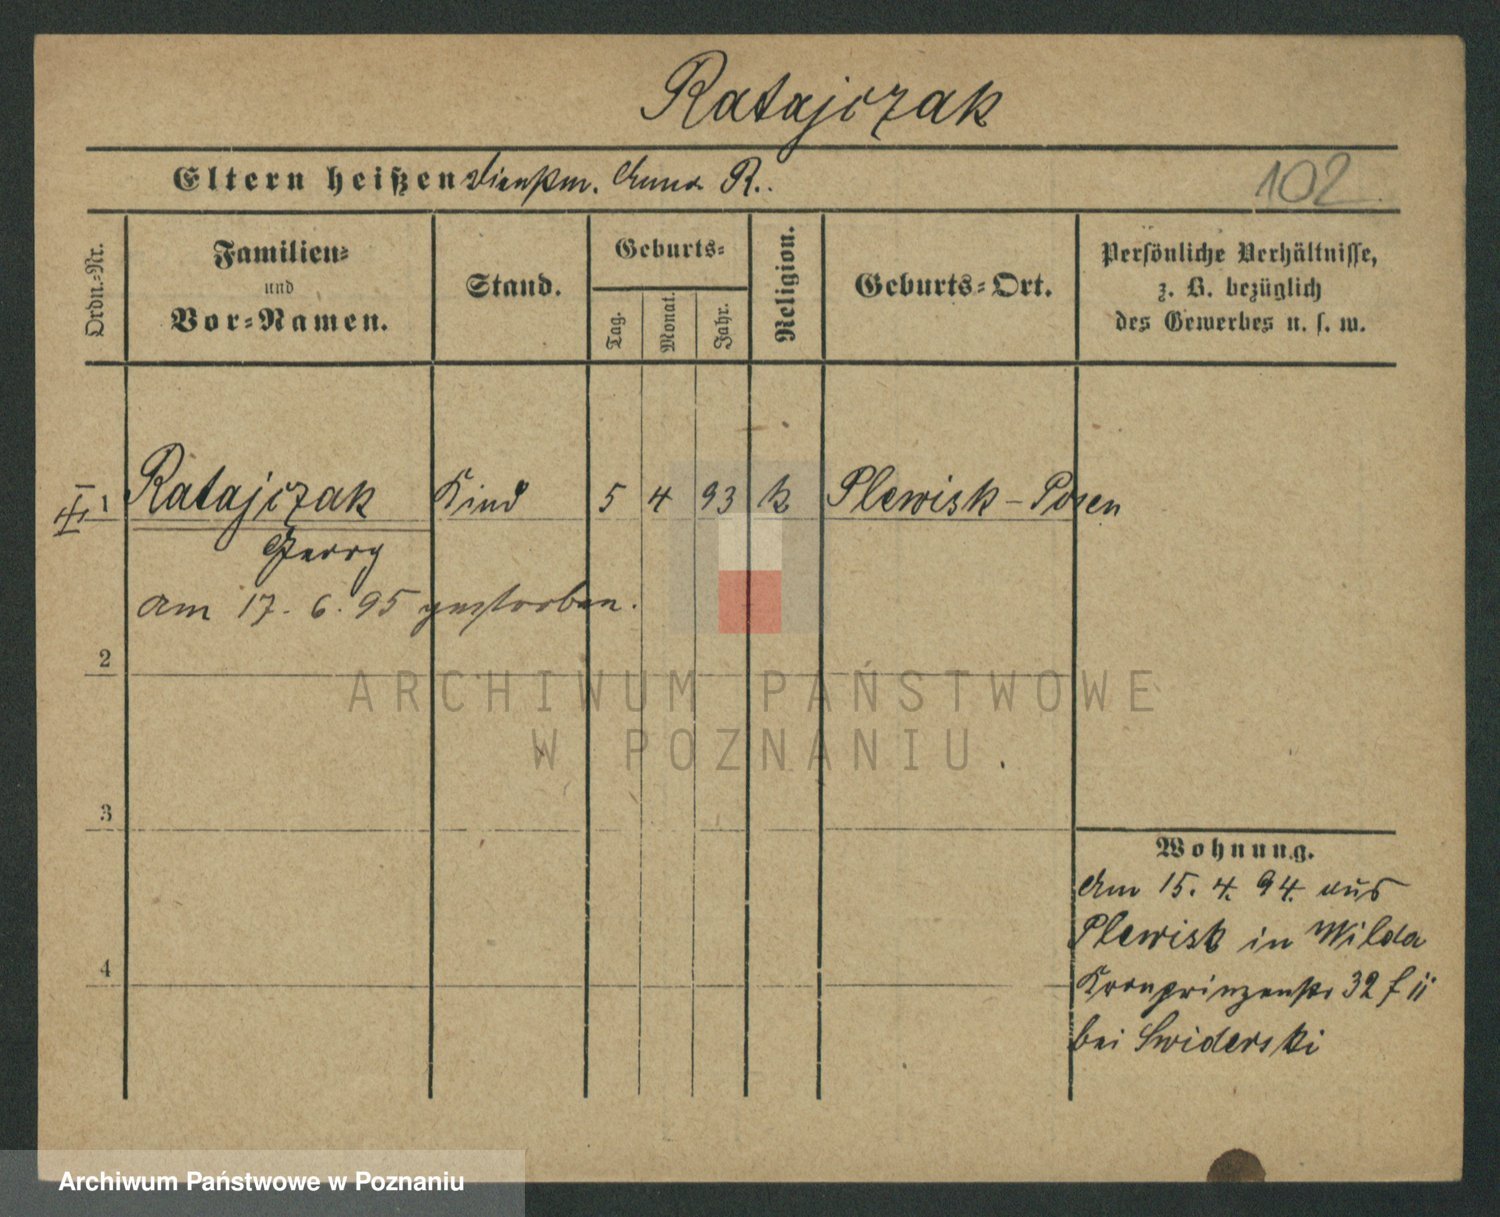 Ratajczak
Eltern heißen Dienstm. Anna R..
102
Ordn.-Nr.
Familien-
und
Vor-Namen.
Stand.
Geburts-
Tag.
Monat.
Jahr.
Religion.
Geburts-Ort.
Persönliche Verhältnisse,
z. B. bezüglich
des Gewerbes u. s. w.
1 Ratajczak Kind 5 4 93 k Plewisk - Posen
Georg
am 17. 6. 95 gestorben.
2
ARCHIWUM PAŃSTWOWE
W POZNANIU
3
Wohnung.
Am 15. 4. 94. aus
Plewisk in Wilda
4
Kronprinzenstr 32 f II
bei Swiderski
Archiwum Państwowe w Poznaniu